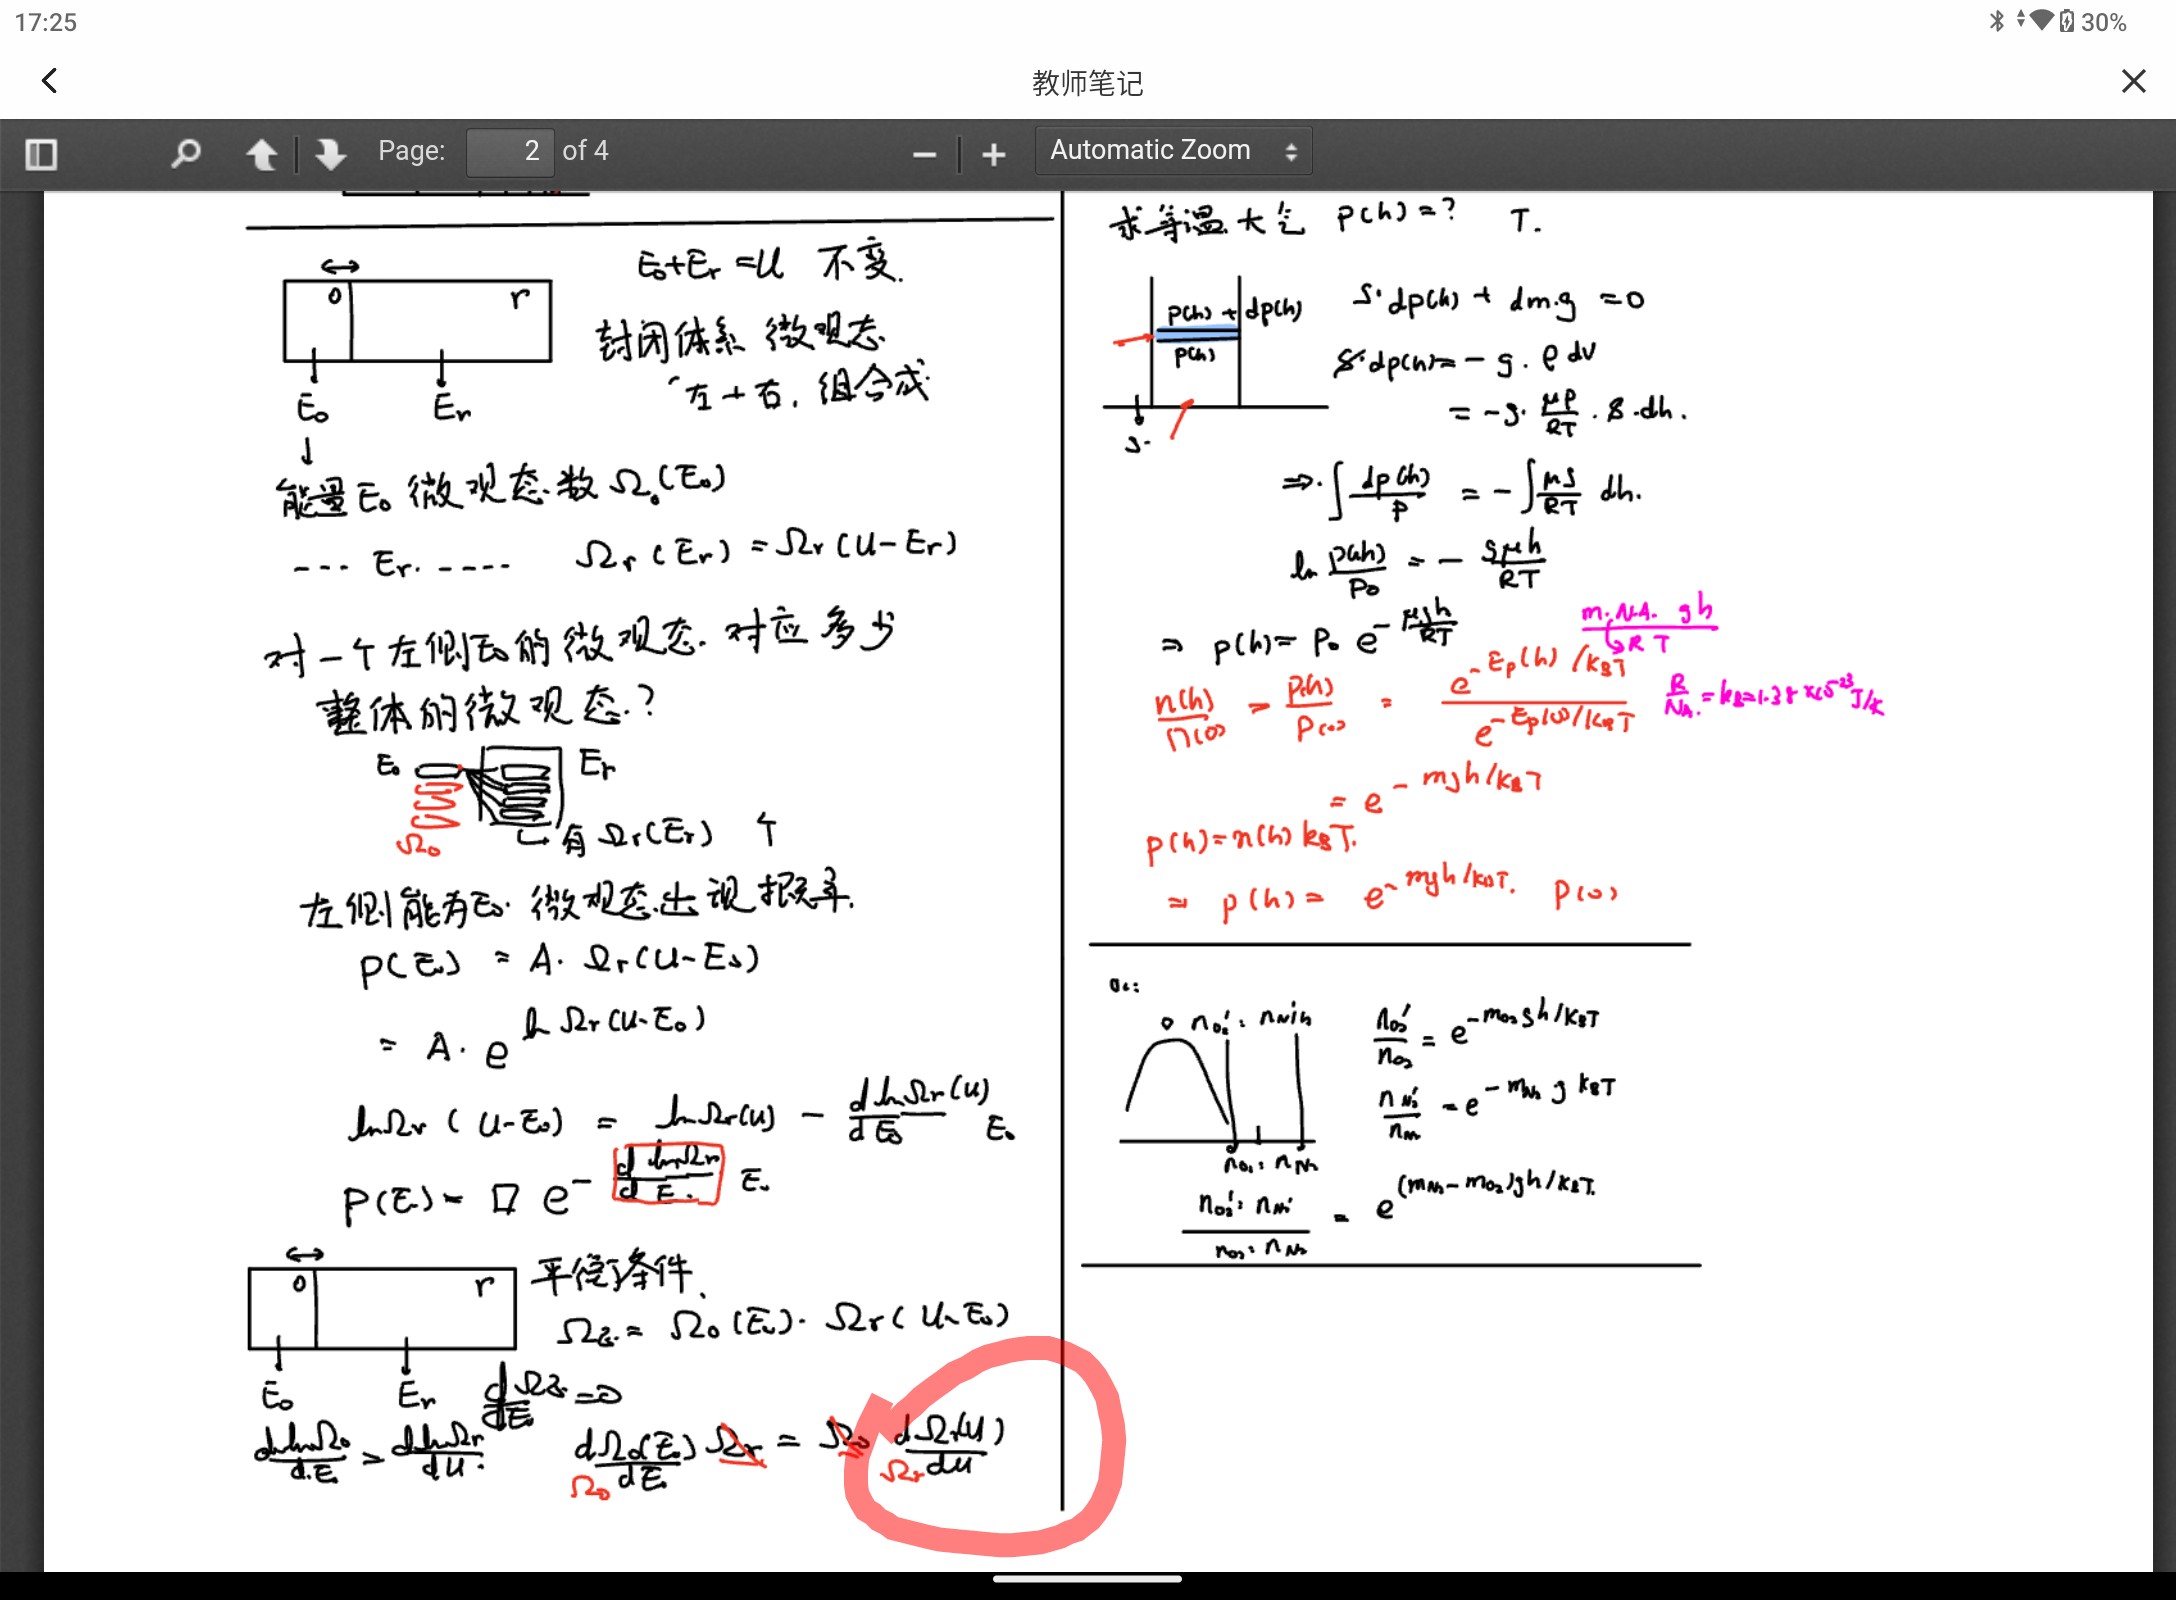 17:25
30%
教师笔记
Page: 2 of 4
Automatic Zoom
E₀+Eᵣ=U 不变.
0 r
封闭体系 微观态
"左+右"组合成
E₀ Eᵣ
↓
能量E₀ 微观态数 Ω₀(E₀)
--- Eᵣ. ---- Ωᵣ(Eᵣ)=Ωᵣ(U-Eᵣ)
对一个左侧E₀的微观态.对应多少
整体的微观态.?
E₀ Eᵣ
Ω₀
有 Ωᵣ(Eᵣ) 个
左侧能为E₀.微观态出现概率.
P(E₀) = A. Ωᵣ(U-E₀)
= A. e^{ln Ωᵣ(U-E₀)}
lnΩᵣ(U-E₀) = lnΩᵣ(U) - \frac{d lnΩᵣ(U)}{dE₀} E₀
P(E₀)= □ e^{-\frac{d lnΩᵣ}{dE.} E₀}
0 r
平衡条件.
Ω总= Ω₀(E₀). Ωᵣ(U-E₀)
E₀ Eᵣ
\frac{dΩ总}{dE₀}=0
\frac{d lnΩ₀}{dE₀} = \frac{d lnΩᵣ}{dU}.
\frac{dΩ₀(E₀)}{Ω₀ dE₀} Ωᵣ = Ω₀ \frac{dΩᵣ(U)}{Ωᵣ dU}
求等温大气 P(h)=? T.
P(h)+dp(h)
P(h)
S.
S.dp(h) + dm.g =0
S.dp(h)=-g.ρdV
= -g. \frac{μP}{RT}. S.dh.
⇒. ∫\frac{dp(h)}{P} = -∫\frac{μg}{RT} dh.
ln \frac{P(h)}{P₀} = - \frac{gμh}{RT}
⇒ p(h)= P₀ e^{-\frac{μgh}{RT}}
\frac{m.N.A. gh}{RT}
\frac{n(h)}{n(0)} = \frac{P(h)}{P(0)} = \frac{e^{-Ep(h)/k_BT}}{e^{-Ep(0)/k_BT}}
\frac{R}{N_A.}=k_B=1.38×10^{-23}J/K
= e^{-mgh/k_BT}
P(h)=n(h) k_BT.
⇒ p(h)= e^{-mgh/k_BT.} P(0)
0 n_{O₂}' : n_{N₂}' h
n_{O₂} : n_{N₂}
\frac{n_{O₂}'}{n_{O₂}} = e^{-m_{O₂}gh/k_BT}
\frac{n_{N₂}'}{n_{N₂}} = e^{-m_{N₂} g k_BT}
\frac{n_{O₂}' : n_{N₂}'}{n_{O₂} : n_{N₂}} = e^{(m_{N₂}-m_{O₂})gh/k_BT.}